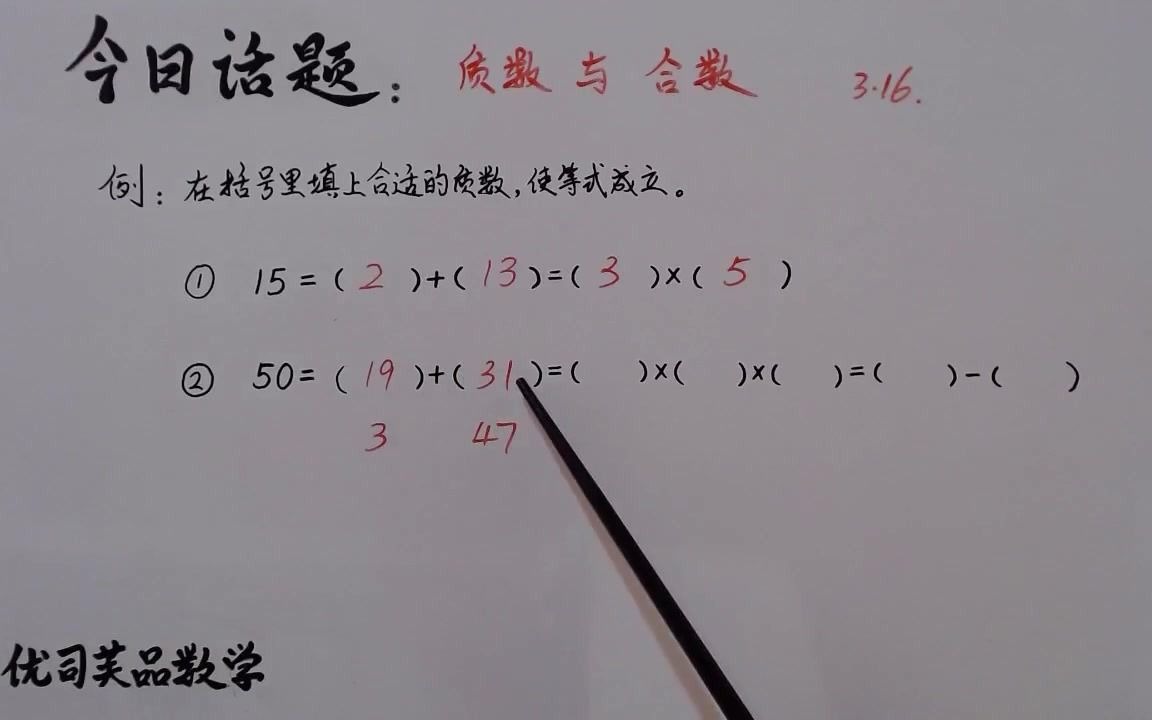 今日话题：质数与合数 3.16.
例：在括号里填上合适的质数，使等式成立。
① 15=(2)+(13)=(3)×(5)
② 50=(19)+(31)=( )×( )×( )=( )-( )
3 47
优司芙品数学